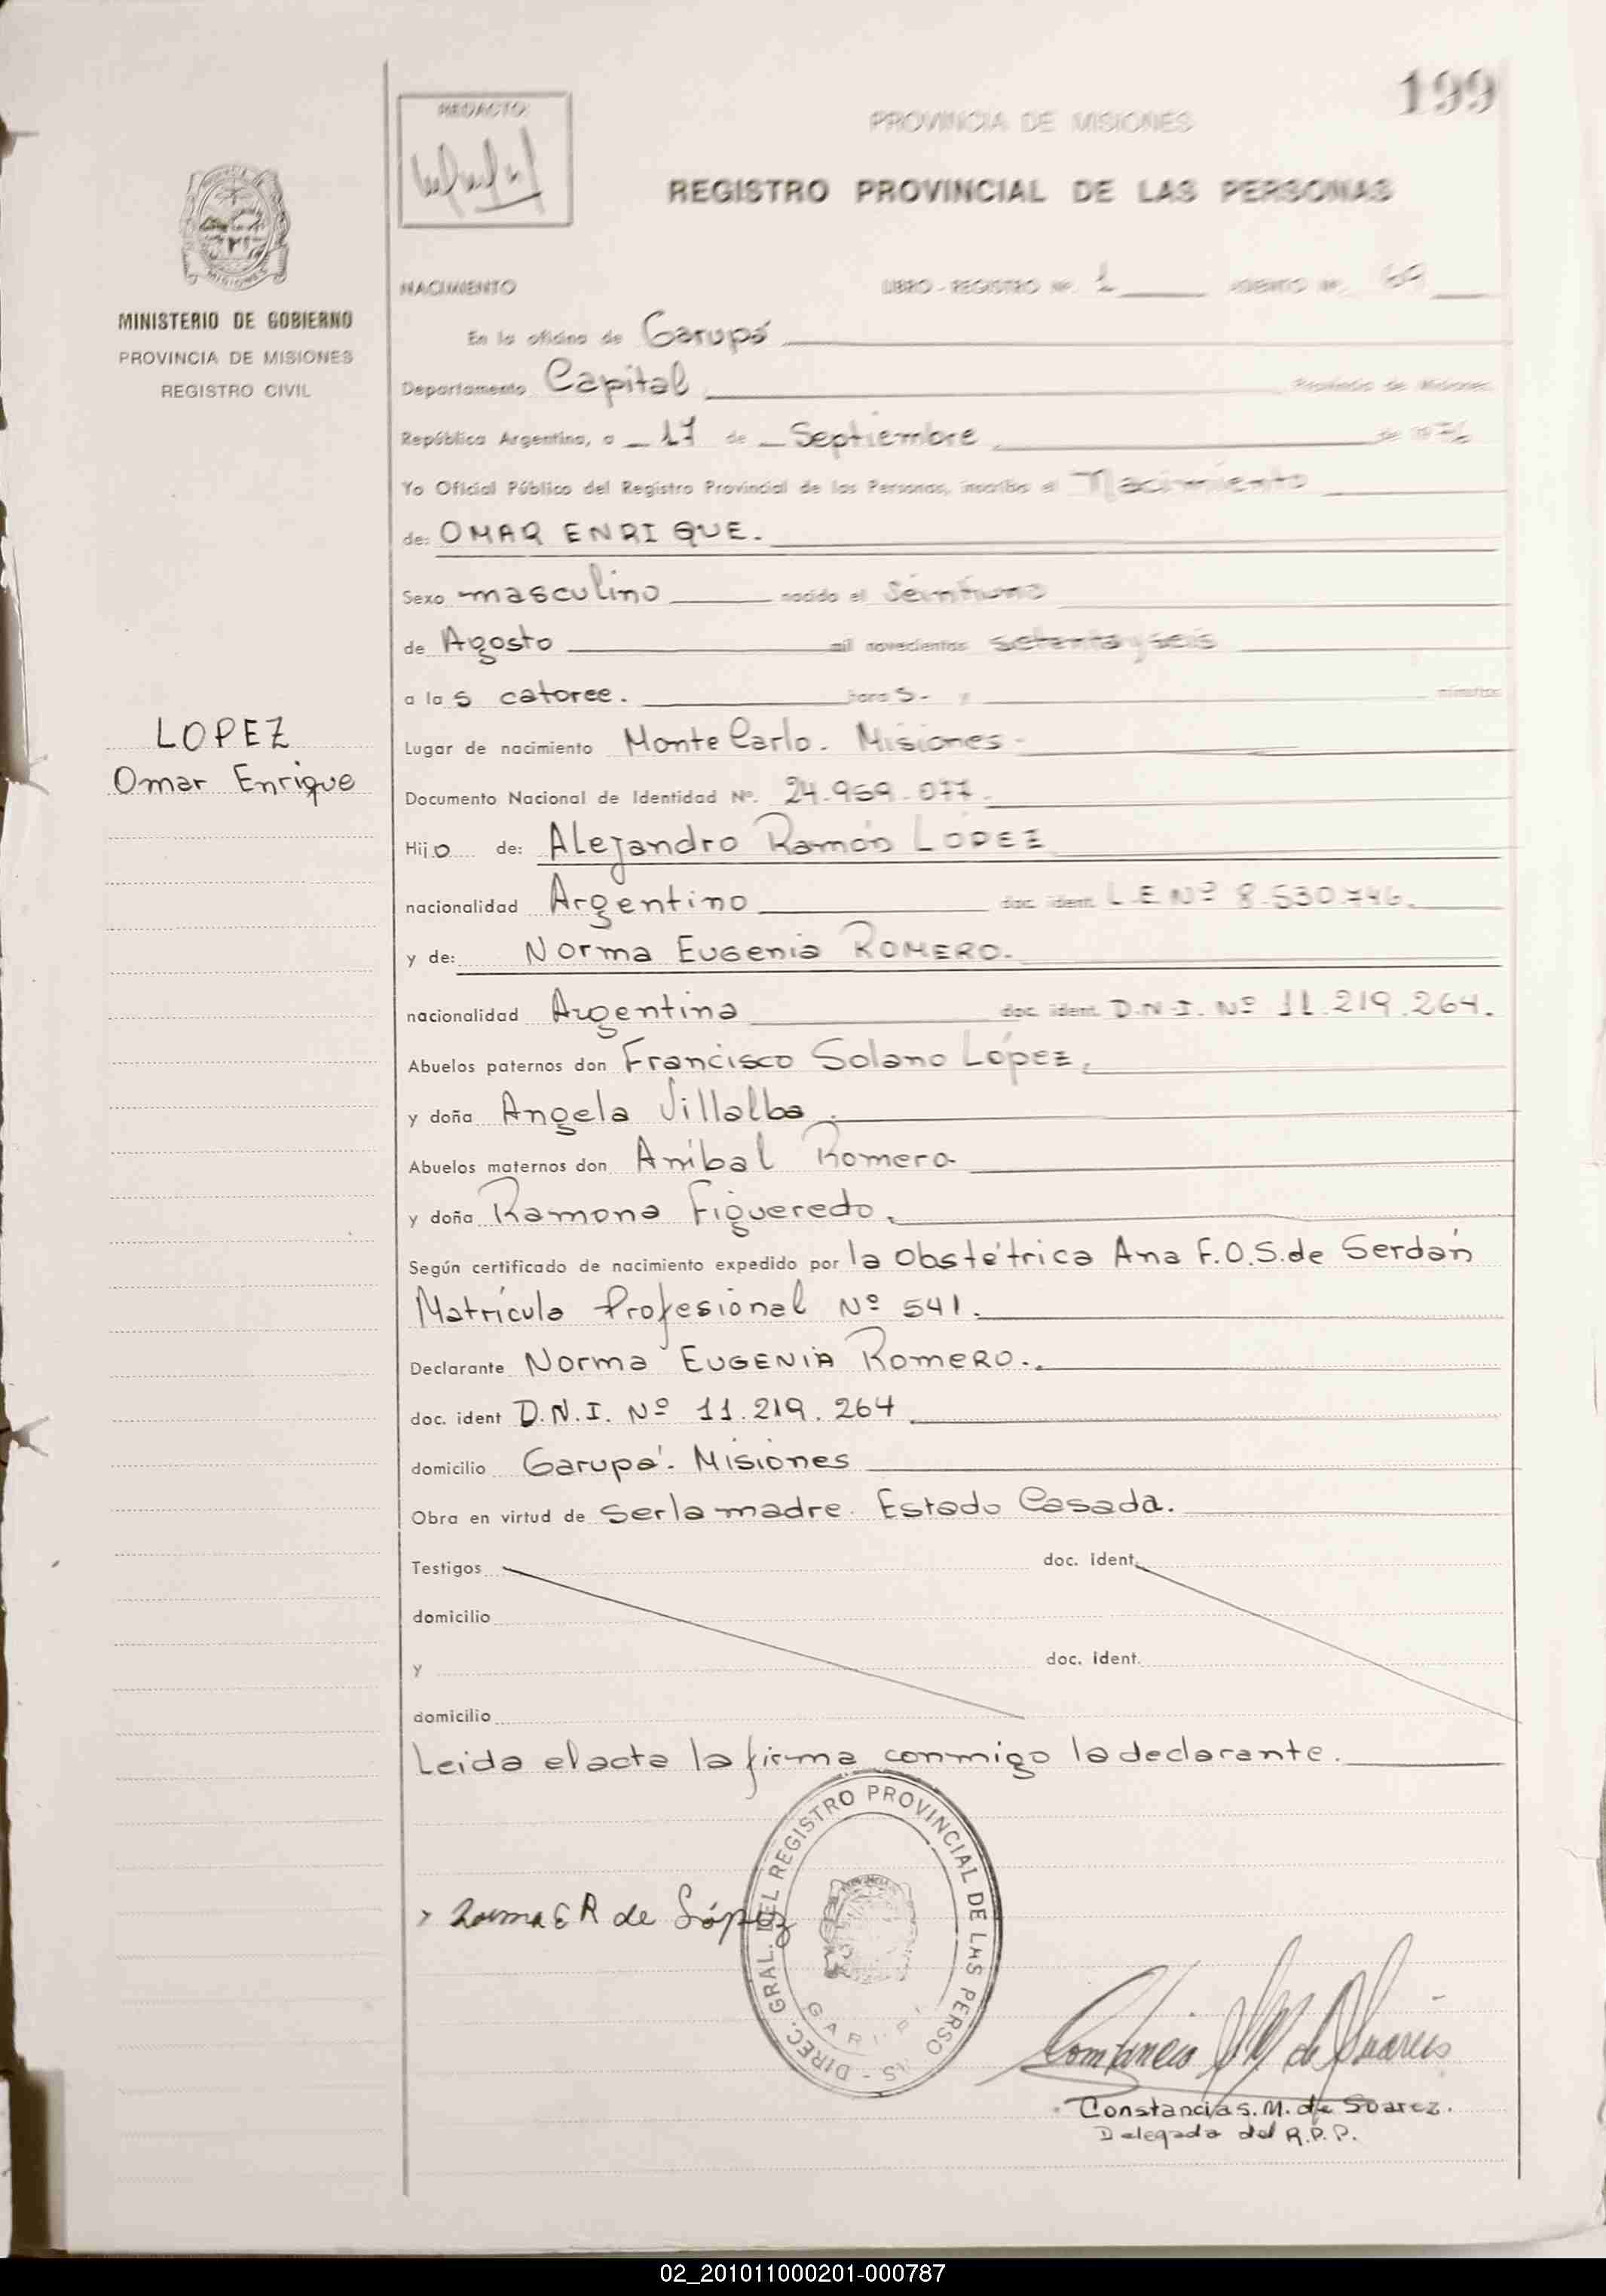 199
REDACTO:
PROVINCIA DE MISIONES
REGISTRO PROVINCIAL DE LAS PERSONAS
MISIONES
MINISTERIO DE GOBIERNO
PROVINCIA DE MISIONES
REGISTRO CIVIL
NACIMIENTO LIBRO - REGISTRO Nº. 1 ASIENTO Nº. 69
En la oficina de Garupá
Departamento Capital Provincia de Misiones
República Argentina, a 17 de Septiembre de 1976
Yo Oficial Público del Registro Provincial de las Personas, inscribo el Nacimiento
de: OMAR ENRIQUE.
Sexo masculino nacido el
de Agosto mil novecientos setenta y seis
a las catorce. horas. y minutos
LOPEZ
Omar Enrique
Lugar de nacimiento Monte Carlo. Misiones.
Documento Nacional de Identidad Nº. 24.959.077.
Hijo de: Alejandro Ramón LOPEZ
nacionalidad Argentino doc. ident. L.E. Nº 8.530.746.
y de: Norma Eugenia ROMERO.
nacionalidad Argentina doc. ident. D.N.I. Nº 11.219.264.
Abuelos paternos don Francisco Solano López.
y doña Angela Villalba.
Abuelos maternos don Anibal Romero
y doña Ramona Figueredo.
Según certificado de nacimiento expedido por la Obstétrica Ana F.O.S. de Serdán
Matrícula Profesional Nº 541.
Declarante Norma EUGENIA ROMERO.
doc. ident D.N.I. Nº 11.219.264
domicilio Garupá. Misiones
Obra en virtud de ser la madre. Estado Casada.
Testigos doc. ident.
domicilio
y doc. ident.
domicilio
Leida el acta la firma conmigo la declarante.
DIREC. GRAL. DEL REGISTRO PROVINCIAL DE LAS PERSO
Norma E R de López
Constancia S. M. de Suarez.
Delegada del R.P.P.
02_201011000201-000787